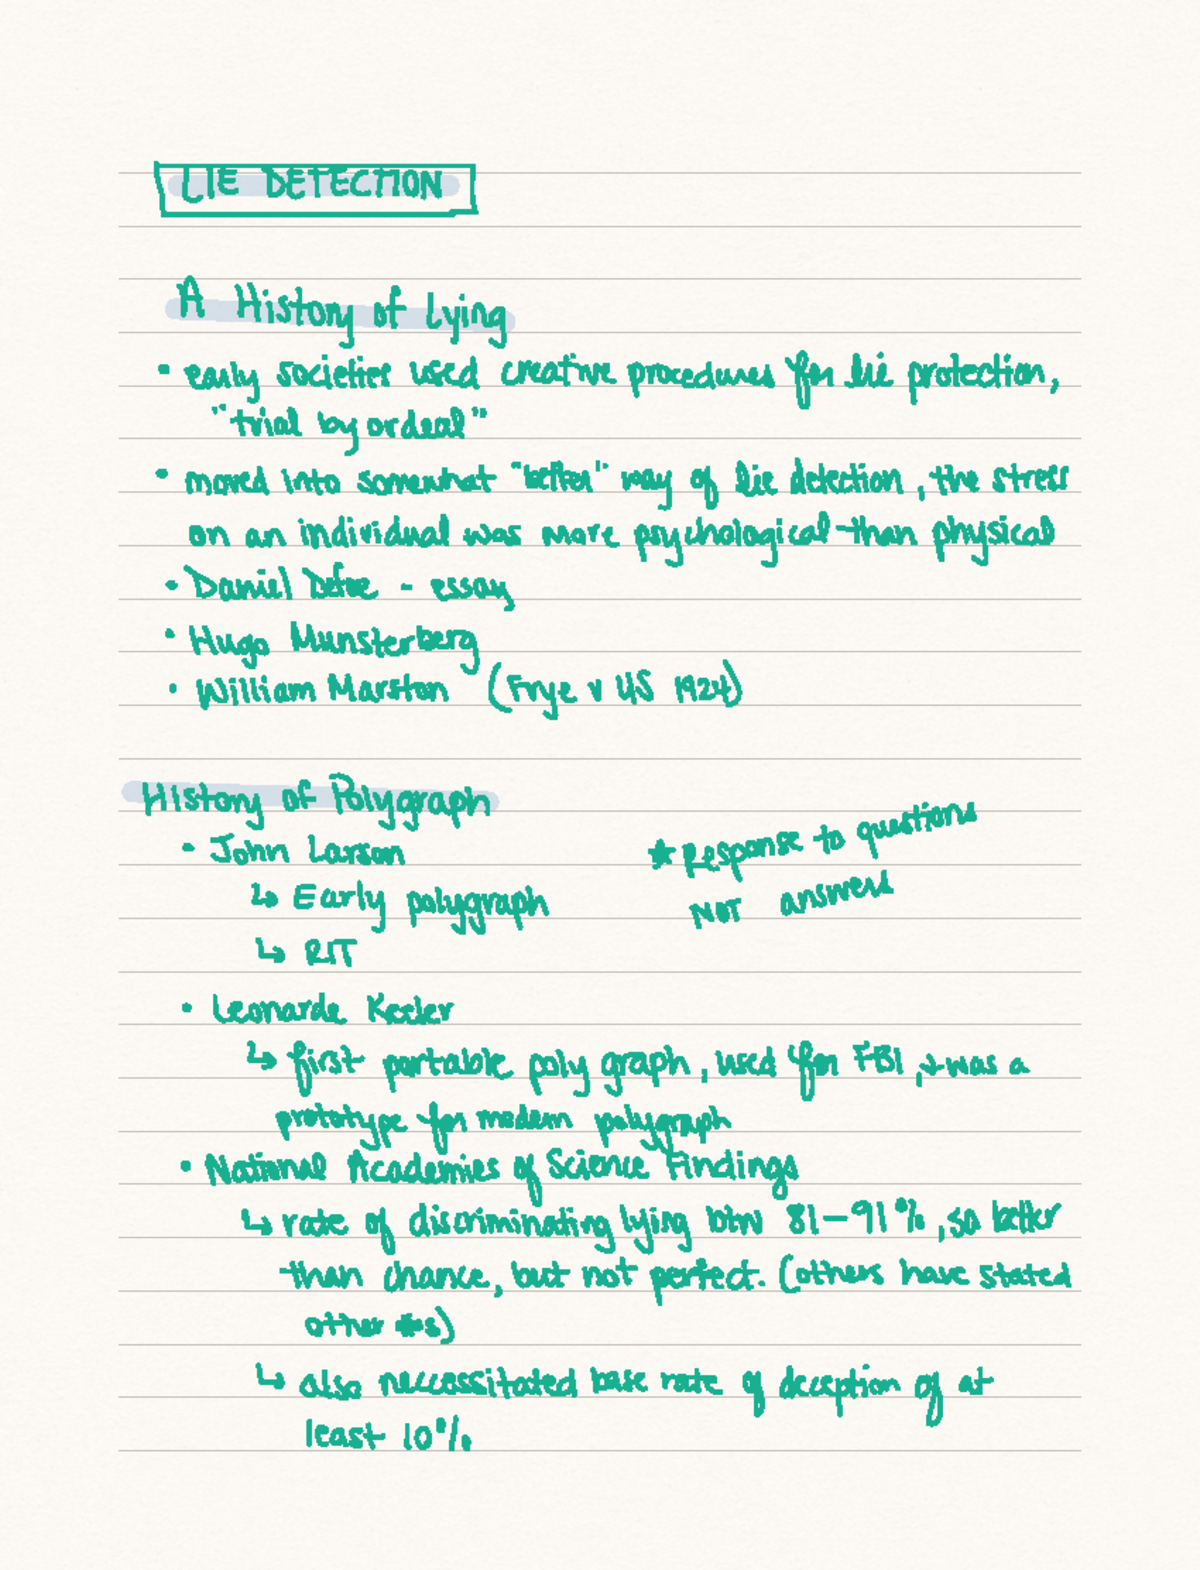 LIE DETECTION
A History of Lying
• early societies used creative procedures for lie protection,
"trial by ordeal"
• moved into somewhat "better" way of lie detection, the stress
on an individual was more psychological than physical
• Daniel Defoe - essay
• Hugo Munsterberg
• William Marston (Frye v US 1924)
History of Polygraph
• John Larson
↳ Early polygraph
↳ RIT
* Response to questions
NOT answers
• Leonarde Keeler
↳ first portable poly graph, used for FBI, + was a
prototype for modern polygraph
• National Academies of Science Findings
↳ rate of discriminating lying btw 81-91%, so better
than chance, but not perfect. (others have stated
other #s)
↳ also neccessitated base rate of deception of at
least 10%